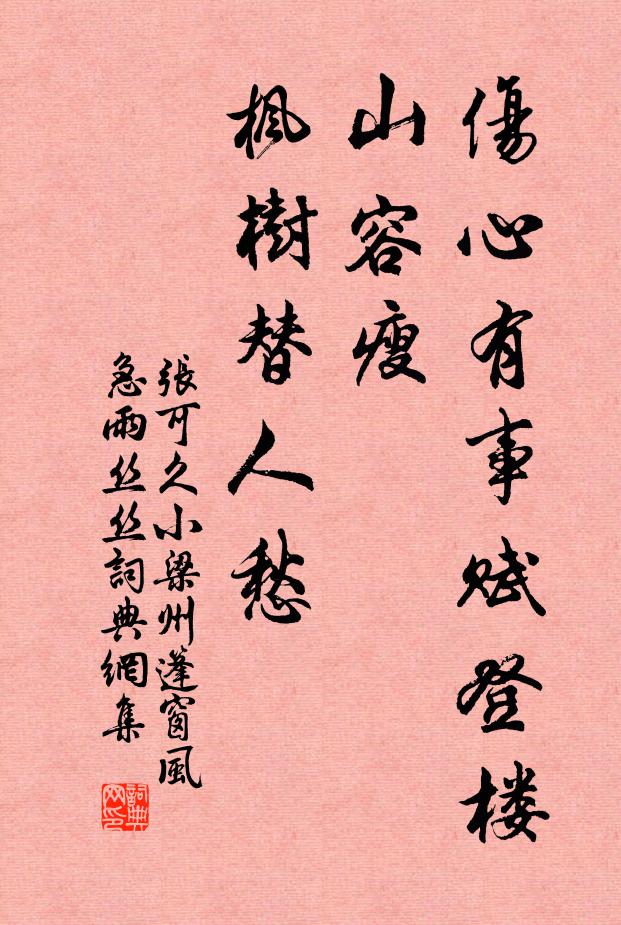 傷心有事賦登楼
山容瘦
楓樹替人愁
張可久小梁州蓬窗風
急雨丝丝詞典網集
詞典网印